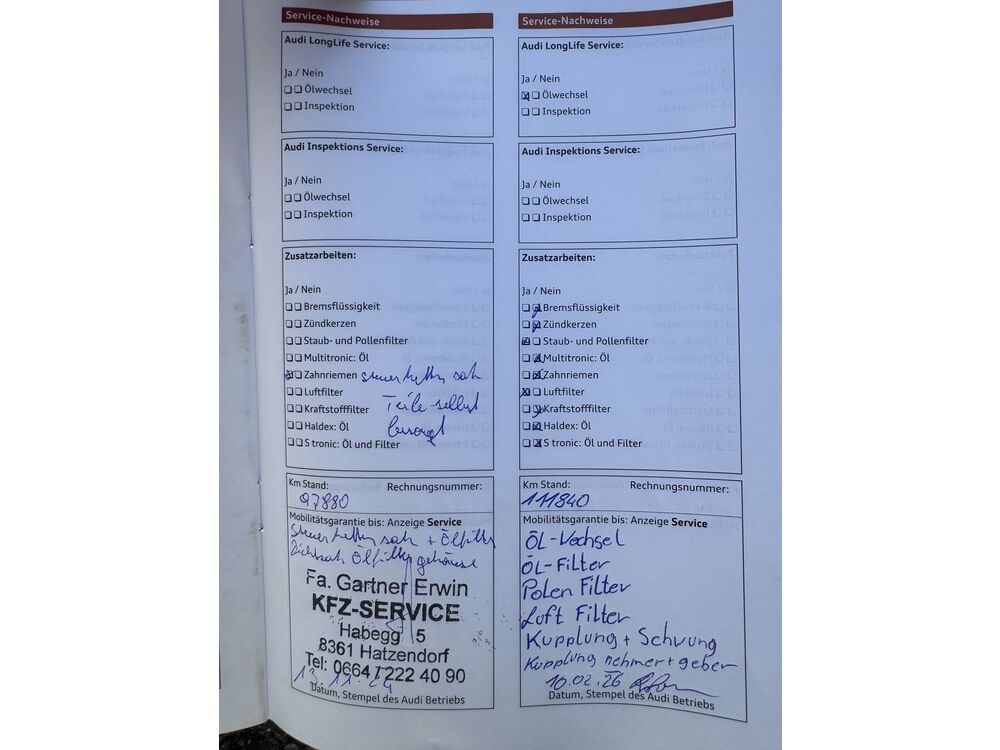 Service-Nachweise
Audi LongLife Service:
Ja / Nein
Ölwechsel
Inspektion
Audi Inspektions Service:
Ja / Nein
Ölwechsel
Inspektion
Zusatzarbeiten:
Ja / Nein
Bremsflüssigkeit
Zündkerzen
Staub- und Pollenfilter
Multitronic: Öl
Zahnriemen steuerketten satz
Luftfilter
Kraftstofffilter Teile selbst
Haldex: Öl besorgt
S tronic: Öl und Filter
Km Stand: Rechnungsnummer:
97880
Mobilitätsgarantie bis: Anzeige Service
Steuerketten satz + Ölfilter
Dichtsatz Ölfiltergehäuse
Fa. Gartner Erwin
KFZ-SERVICE
Habegg 5
8361 Hatzendorf
Tel: 0664 / 222 40 90
13.11.24
Datum, Stempel des Audi Betriebs
Service-Nachweise
Audi LongLife Service:
Ja / Nein
Ölwechsel
Inspektion
Audi Inspektions Service:
Ja / Nein
Ölwechsel
Inspektion
Zusatzarbeiten:
Ja / Nein
Bremsflüssigkeit
Zündkerzen
Staub- und Pollenfilter
Multitronic: Öl
Zahnriemen
Luftfilter
Kraftstofffilter
Haldex: Öl
S tronic: Öl und Filter
Km Stand: Rechnungsnummer:
111840
Mobilitätsgarantie bis: Anzeige Service
ÖL-Vechsel
ÖL-Filter
Polen Filter
Luft Filter
Kupplung + Schvung
Kupplung nehmer + geber
10.02.26
Datum, Stempel des Audi Betriebs